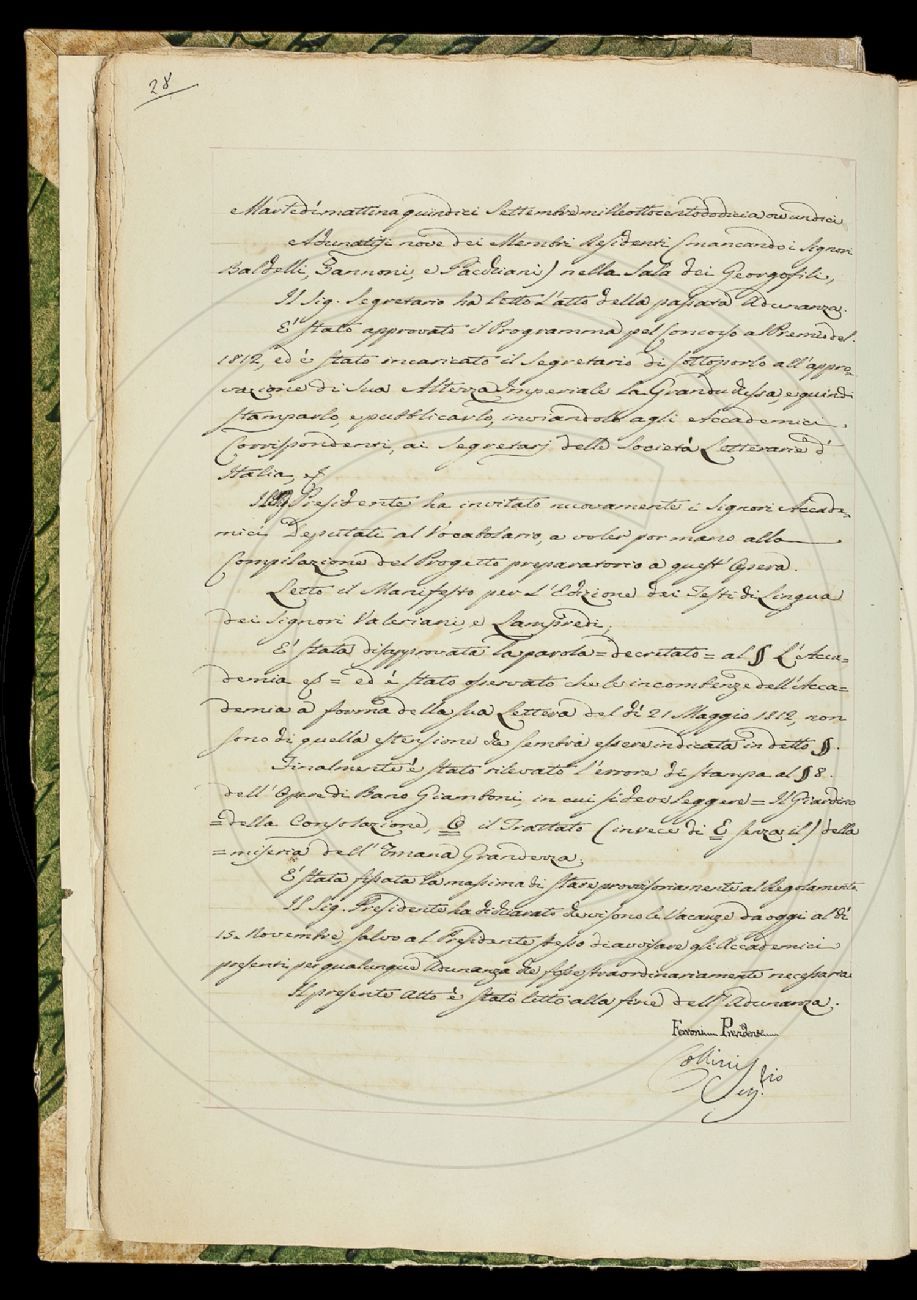 28
Martedì mattina quindici Settembre milleottocentododici a ore undici
Adunatisi nove dei Membri Residenti (mancando i Signori
Baldelli, Zannoni, e Pacchiani) nella Sala dei Georgofili,
Il Sig. Segretario ha letto l'atto della passata Adunanza.
E' stato approvato il Programma pel Concorso al Premio del
1812, ed è stato incaricato il Segretario di sottoporlo all'appro-
vazione di Sua Altezza Imperiale La Granduchessa, e quindi
stamparlo, e pubblicarlo, inviandolo agli Accademici
Corrispondenti, ai Segretarj delle Società Letterarie d'
Italia,
Il Sig. Presidente ha invitato nuovamente i Signori Accade-
mici Deputati al Vocabolario, a voler por mano alla
Compilazione del Progetto preparatorio a quest'Opera.
Letto il Manifesto per l'Edizione dei Testi di Lingua
dei Signori Valeriani, e Lampredi,
E' stata disapprovata la parola = decretato = al § L'Acca=
demia = ed è stato osservato che le incombenze dell'Acca=
demia a forma della sua Lettera del dì 21 Maggio 1812, non
sono di quella estensione che sembra essere indicata in detto §.
Finalmente è stato rilevato l'errore di stampa al § 8.
dell'Opere di Bono Giamboni, in cui si deve leggere = Il Giardino
= della Consolazione, O il Trattato (invece di E senza il) della
= miseria dell'Umana Grandezza,
E' stata fissata la massima di stare provvisoriamente al Regolamento
Il Sig. Presidente ha dichiarato che vi sono le Vacanze da oggi al dì
15. Novembre, salvo al Presidente stesso di avvisare gli Accademici
presenti per qualunque Adunanza che fosse straordinariamente necessaria
Il presente Atto è stato letto alla fine dell'Adunanza.
Ferroni Presidente
Collini Seg.rio